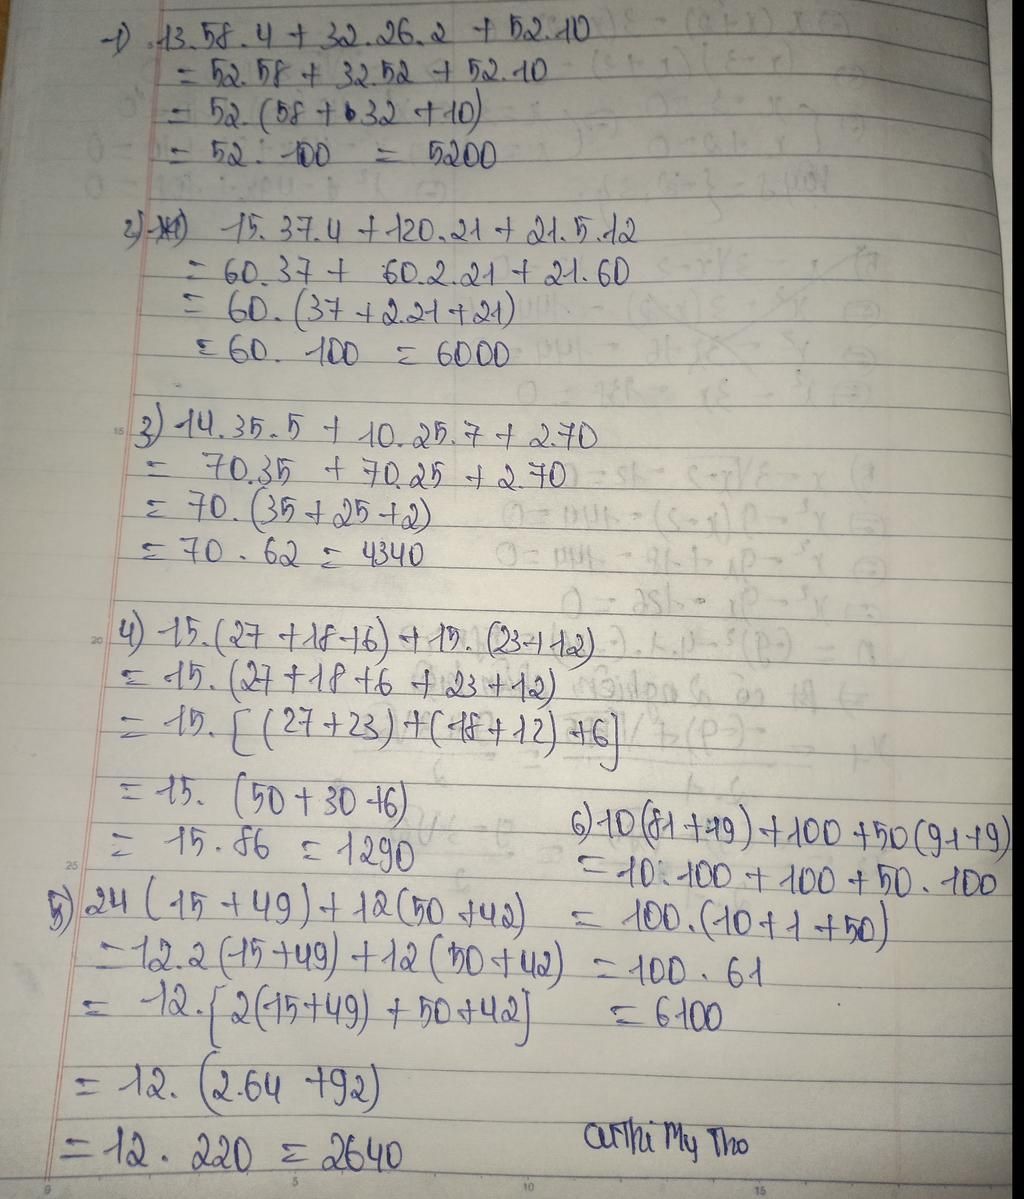 1) 13.58.4 + 32.26.2 + 52.10
= 52.58 + 32.52 + 52.10
= 52.(58 + 32 + 10)
= 52. 100 = 5200
2) 15.37.4 + 120.21 + 21.5.12
= 60.37 + 60.2.21 + 21.60
= 60.(37 + 2.21 + 21)
= 60. 100 = 6000
3) 14.35.5 + 10.25.7 + 2.70
= 70.35 + 70.25 + 2.70
= 70.(35 + 25 + 2)
= 70 . 62 = 4340
4) 15.(27 + 18 + 6) + 15.(23 + 12)
= 15.(27 + 18 + 6 + 23 + 12)
= 15.[(27 + 23) + (18 + 12) + 6]
= 15. (50 + 30 + 6)
= 15.86 = 1290
5) 24(15 + 49) + 12(50 + 42)
= 12.2(15 + 49) + 12(50 + 42)
= 12.[2(15 + 49) + 50 + 42]
= 12. (2.64 + 92)
= 12 . 220 = 2640
6) 10(81 + 19) + 100 + 50(91 + 9)
= 10.100 + 100 + 50.100
= 100.(10 + 1 + 50)
= 100 . 61
= 6100
Thi My Tho
15
20
25
5
10
15